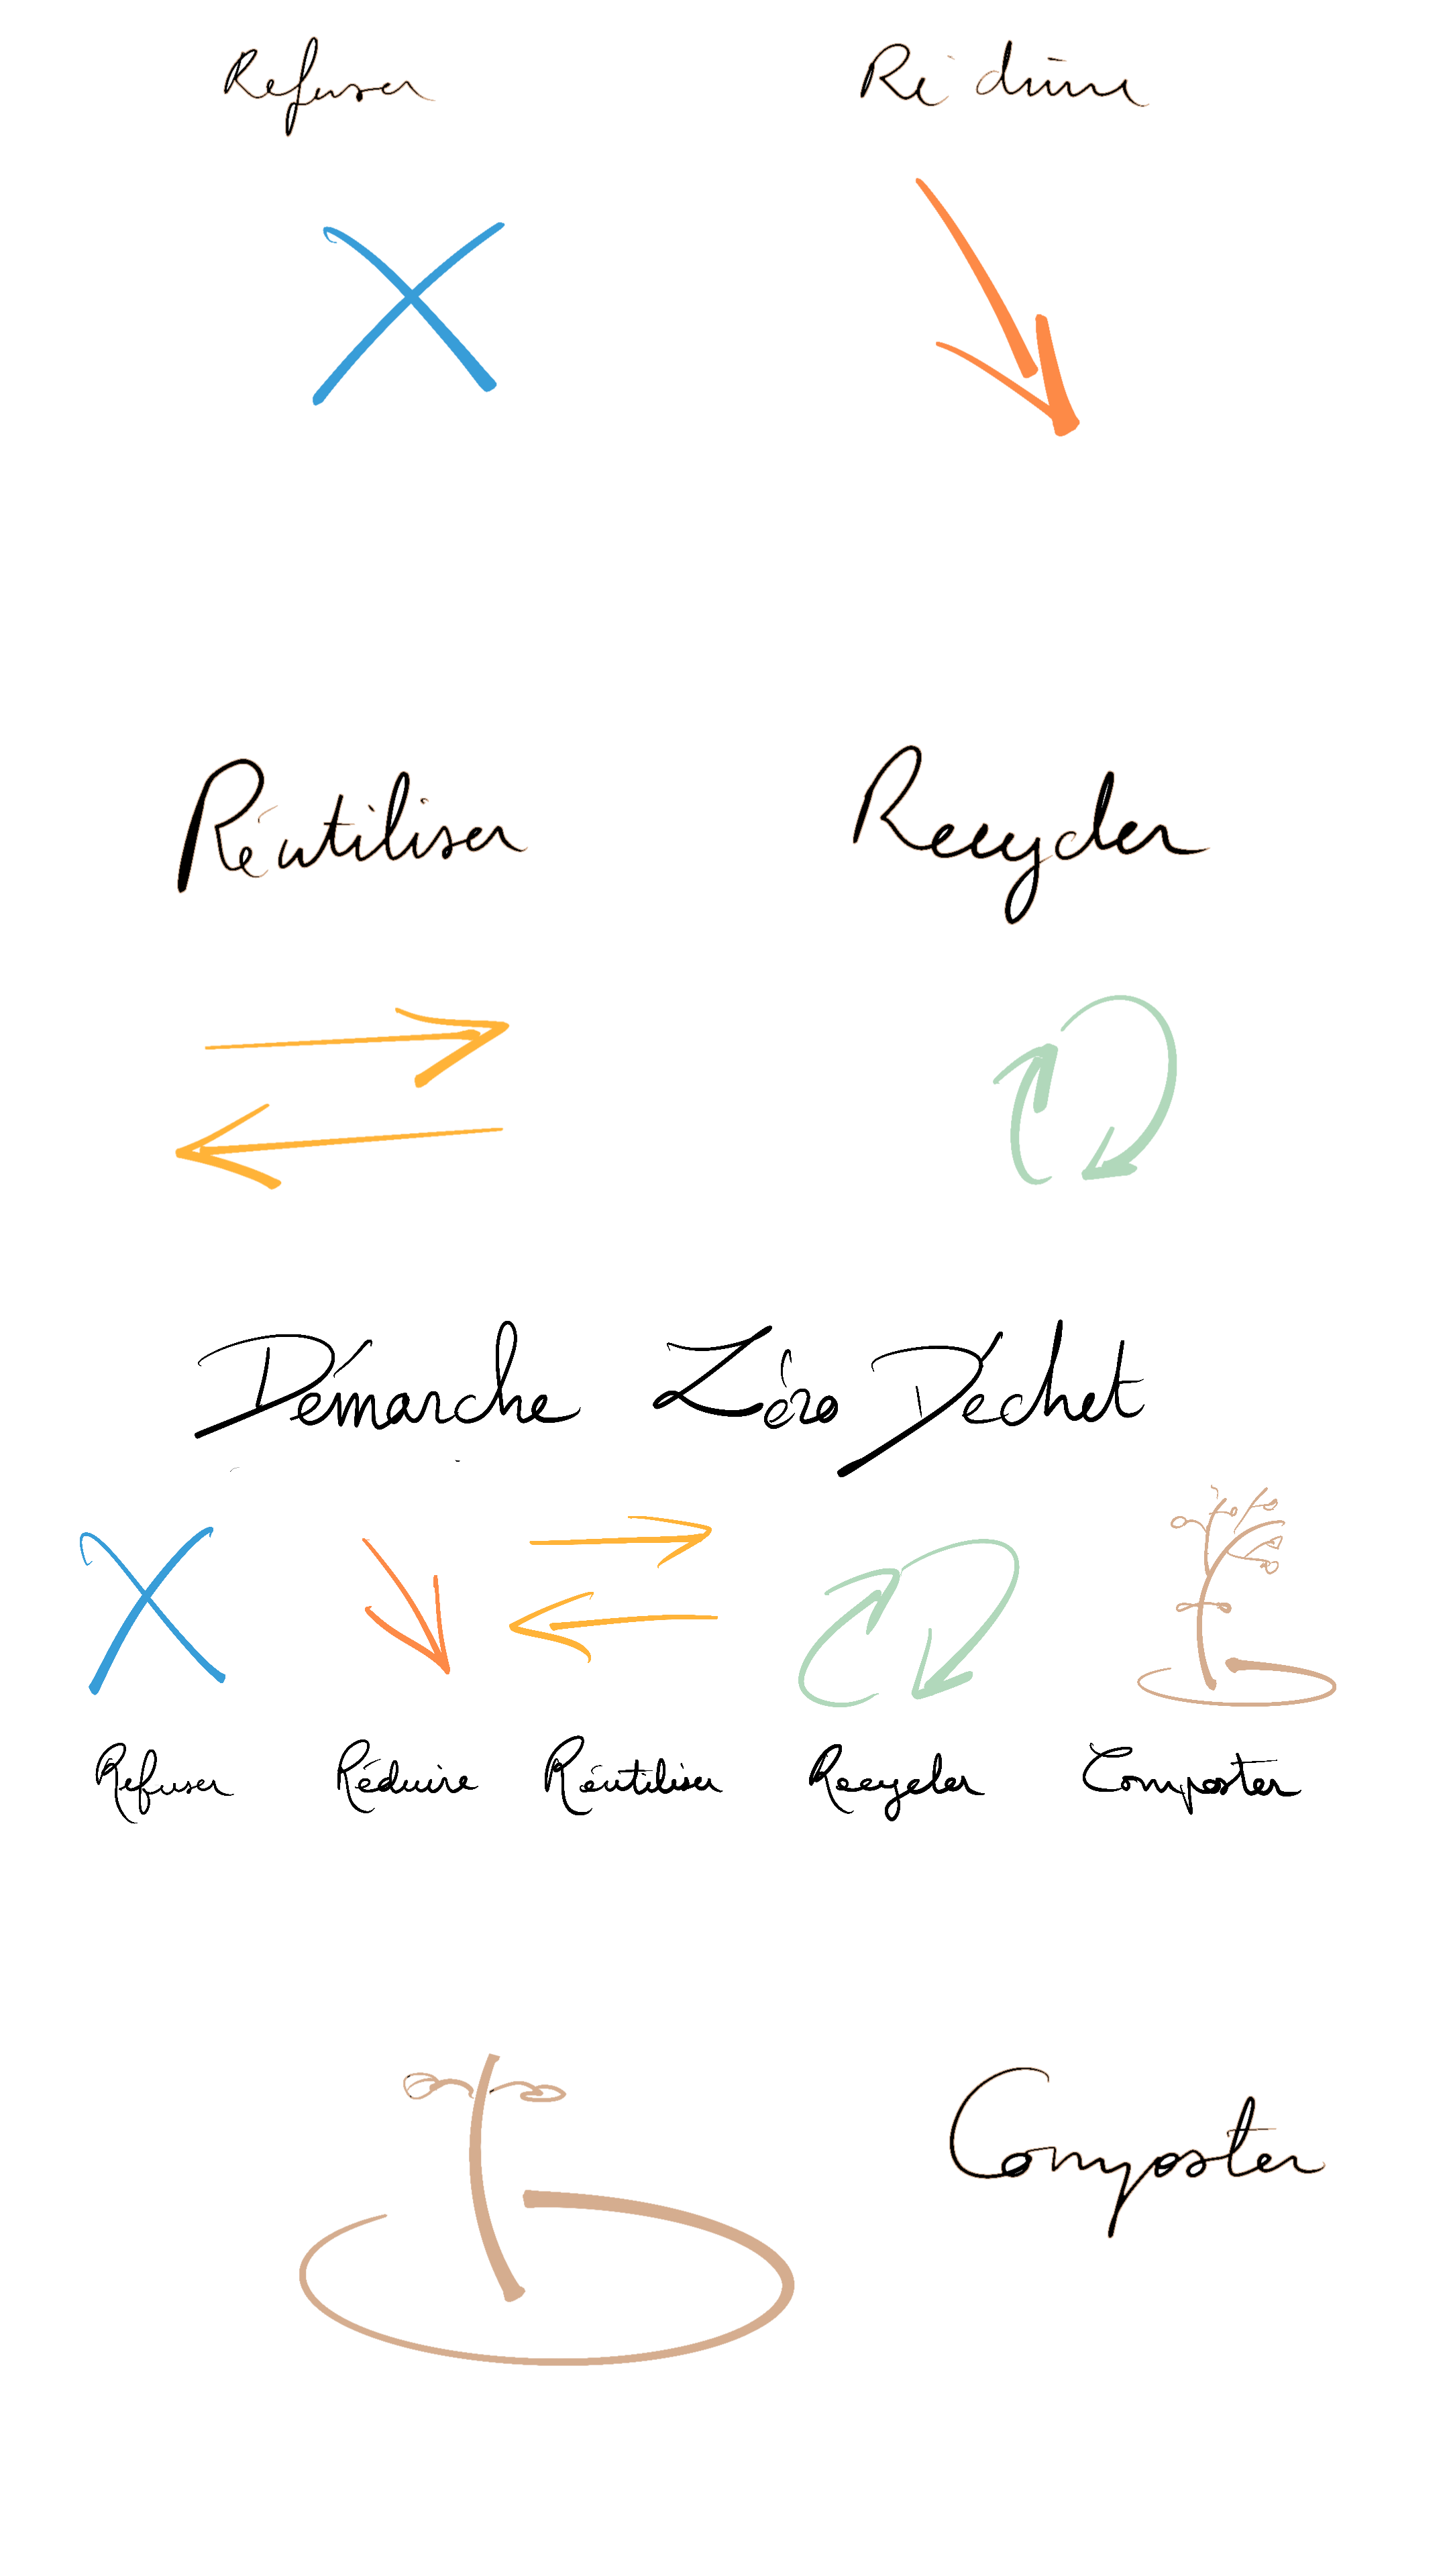 Refuser Réduire
Réutiliser Recycler
Démarche Zéro Déchet
Refuser Réduire Réutiliser Recycler Composter
Composter